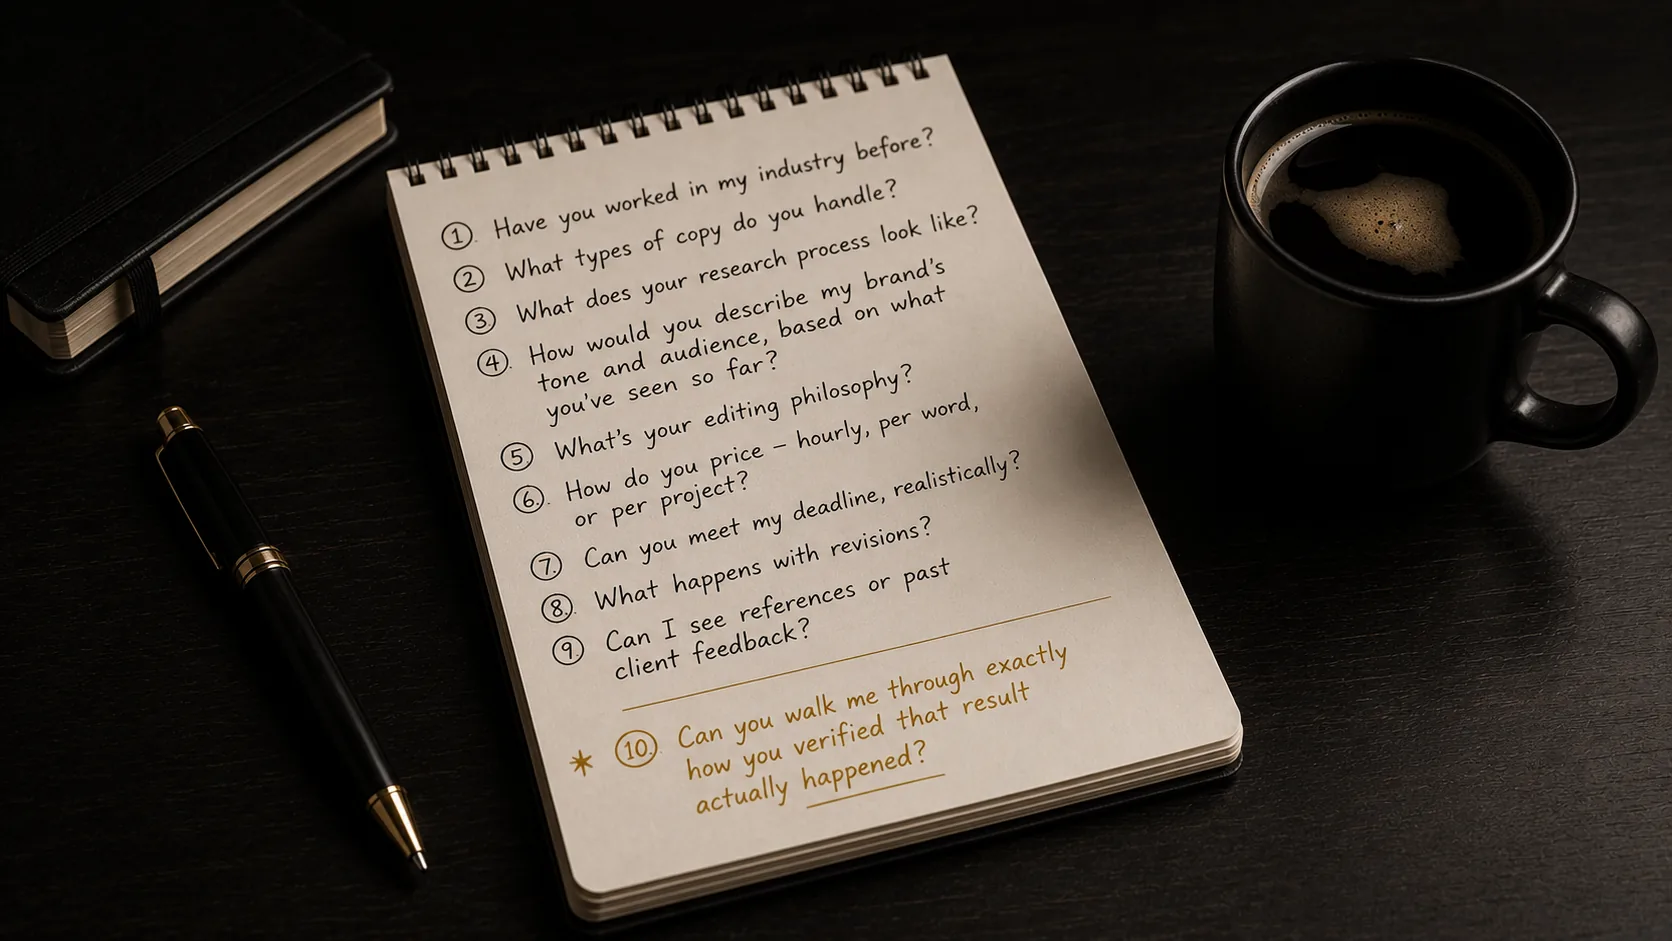 1. Have you worked in my industry before?
2. What types of copy do you handle?
3. What does your research process look like?
4. How would you describe my brand's
tone and audience, based on what
you've seen so far?
5. What's your editing philosophy?
6. How do you price – hourly, per word,
or per project?
7. Can you meet my deadline, realistically?
8. What happens with revisions?
9. Can I see references or past
client feedback?
* 10. Can you walk me through exactly
how you verified that result
actually happened?